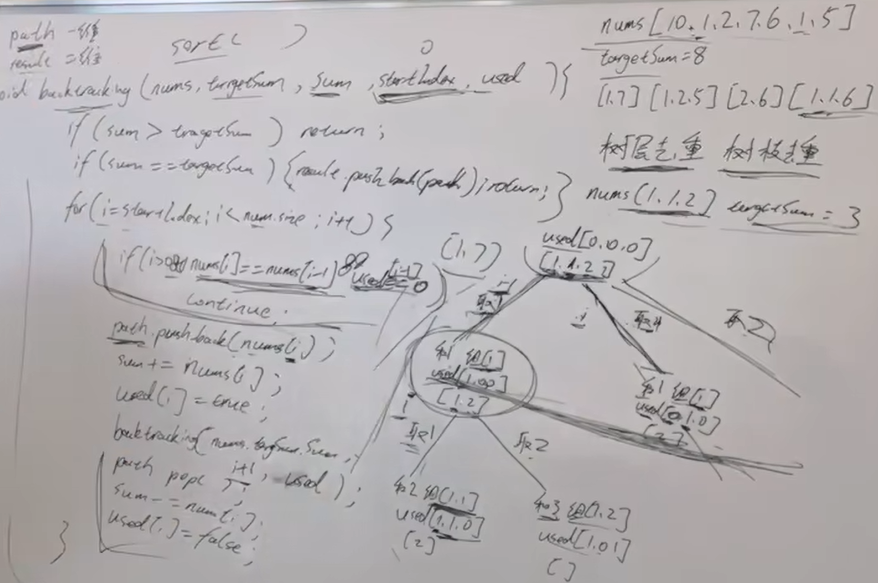 path 一维
result 二维
sort( )
0
void backtracking (nums, targetSum, sum, startIndex, used ){
if (sum > tragetSum ) return ;
if (sum == targetSum ) {result.push back(path); return; }
for (i=startIndex; i<num.size ; i++) {
if (i>0 && nums[i]==nums[i-1] && used[i-1]==0 )
continue;
path.pushback(nums[i]);
sum += nums[i];
used[i] = true;
backtracking(nums, targSum, sum,
i+1, used );
path pop( );
sum -= num[i];
used[i] = false;
}
nums[10.1.2.7.6.1.5]
targetSum=8
[1.7] [1.2.5] [2.6] [1.1.6]
树层去重 树枝去重
nums[1.1.2] targetSum = 3
(1,7)
used[0.0.0]
[1.1.2]
i-1
取1
i
取1
取2
和1 组[1]
used[1.0.0]
[1.2]
和1 组[1]
used[0.1.0]
[2]
i
取1
取2
和2 组[1.1]
used[1.1.0]
[2]
和3 组[1.2]
used[1.0.1]
[ ]